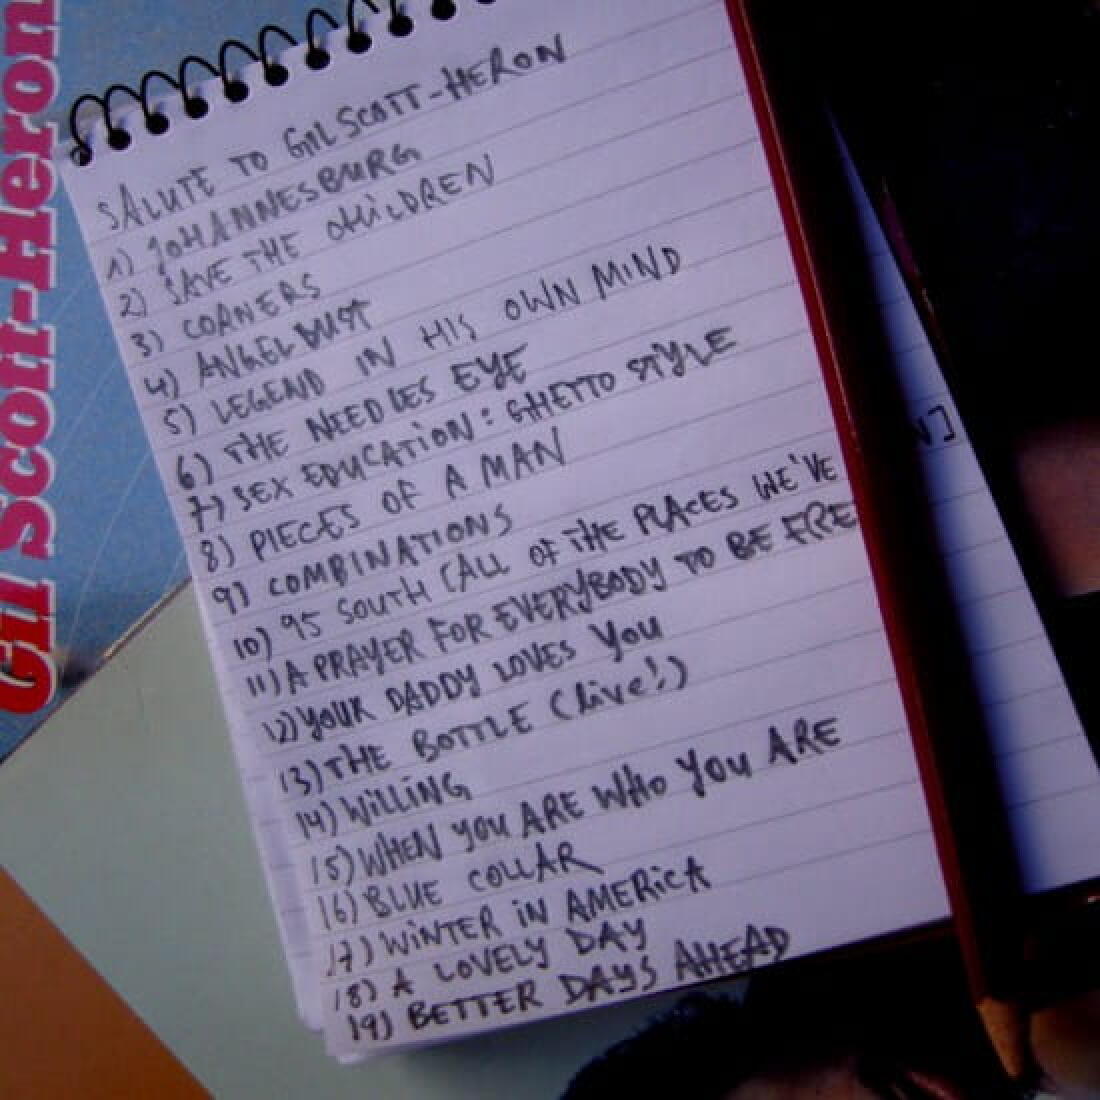 Gil Scott-Heron
SALUTE TO GIL SCOTT-HERON
1) JOHANNESBURG
2) SAVE THE CHILDREN
3) CORNERS
4) ANGEL DUST
5) LEGEND IN HIS OWN MIND
6) THE NEEDLES EYE
7) SEX EDUCATION: GHETTO STYLE
8) PIECES OF A MAN
9) COMBINATIONS
10) 95 SOUTH (ALL OF THE PLACES WE'VE
11) A PRAYER FOR EVERYBODY TO BE FREE
12) YOUR DADDY LOVES YOU
13) THE BOTTLE (live!)
14) WILLING
15) WHEN YOU ARE WHO YOU ARE
16) BLUE COLLAR
17) WINTER IN AMERICA
18) A LOVELY DAY
19) BETTER DAYS AHEAD